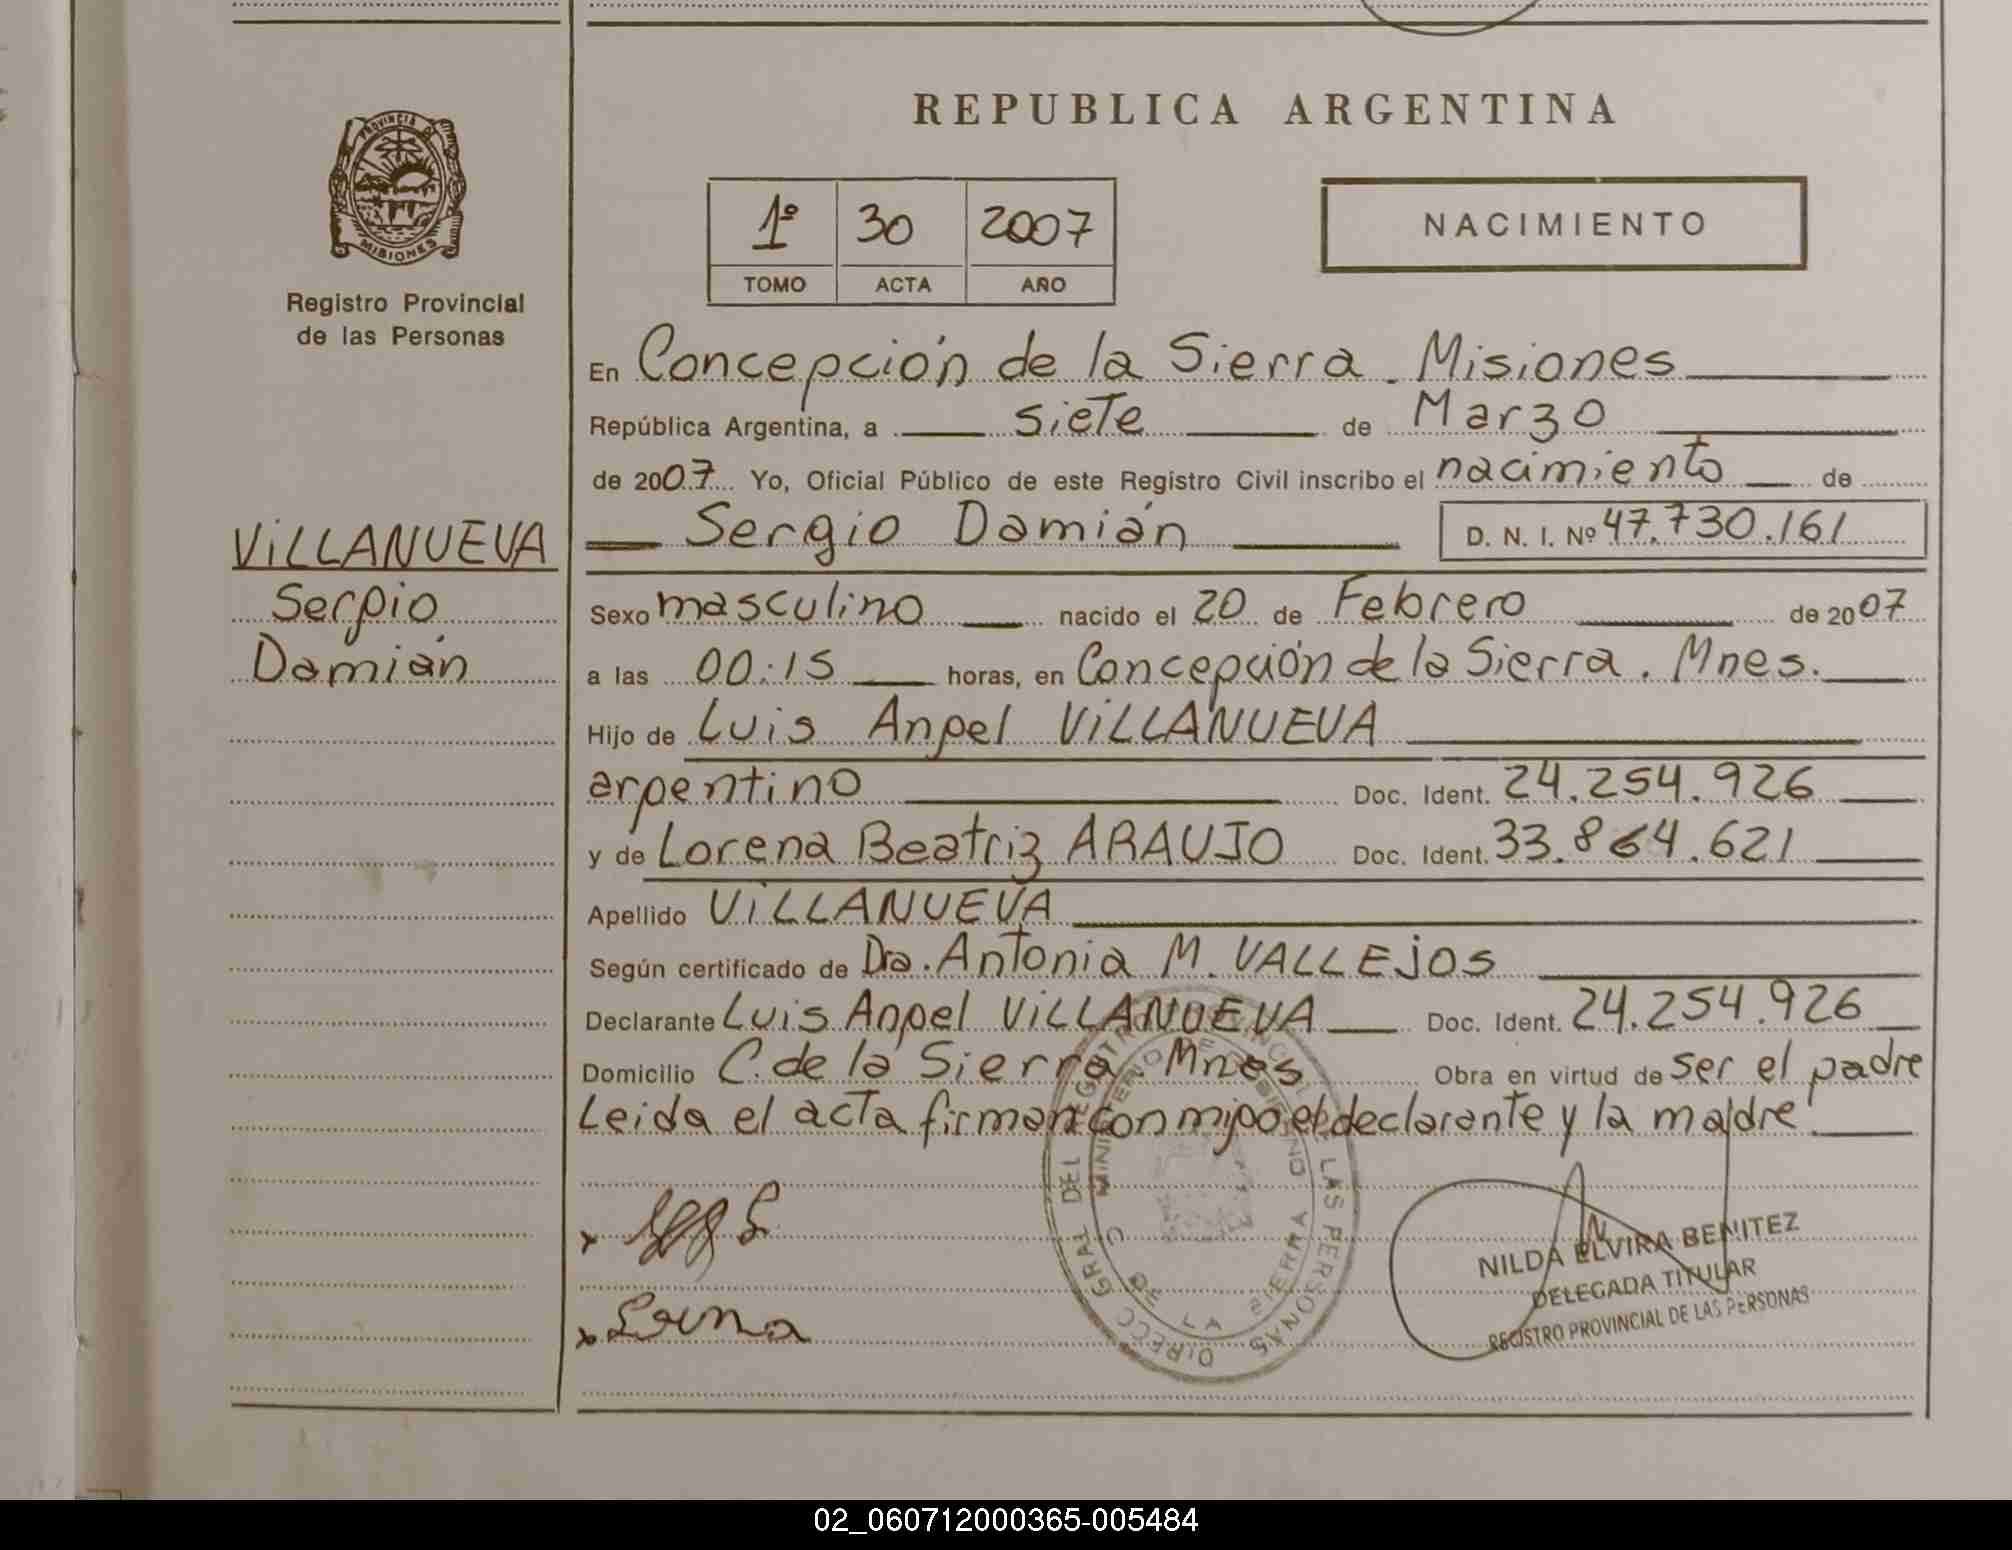 REPUBLICA ARGENTINA
PROVINCIA DE
MISIONES
Registro Provincial
de las Personas
1º 30 2007
TOMO ACTA AÑO
NACIMIENTO
En Concepción de la Sierra. Misiones
República Argentina, a siete de Marzo
de 2007 Yo, Oficial Público de este Registro Civil inscribo el nacimiento de
Sergio Damián D. N. I. Nº 47.730.161
VILLANUEVA
Sergio
Damián
Sexo masculino nacido el 20 de Febrero de 2007
a las 00:15 horas, en Concepción de la Sierra. Mnes.
Hijo de Luis Angel VILLANUEVA
argentino Doc. Ident. 24.254.926
y de Lorena Beatriz ARAUJO Doc. Ident. 33.864.621
Apellido VILLANUEVA
Según certificado de Dra. Antonia M. VALLEJOS
Declarante Luis Angel VILLANUEVA Doc. Ident. 24.254.926
Domicilio C. de la Sierra Mnes Obra en virtud de ser el padre
Leida el acta firman conmigo el declarante y la madre.
DIRECC GRAL DEL REGISTRO PROVINCIAL DE LAS PERSONAS
MINISTERIO DE GOBIERNO
C DE LA SIERRA
x
x Lorena
NILDA ELVIRA BENITEZ
DELEGADA TITULAR
REGISTRO PROVINCIAL DE LAS PERSONAS
02_060712000365-005484